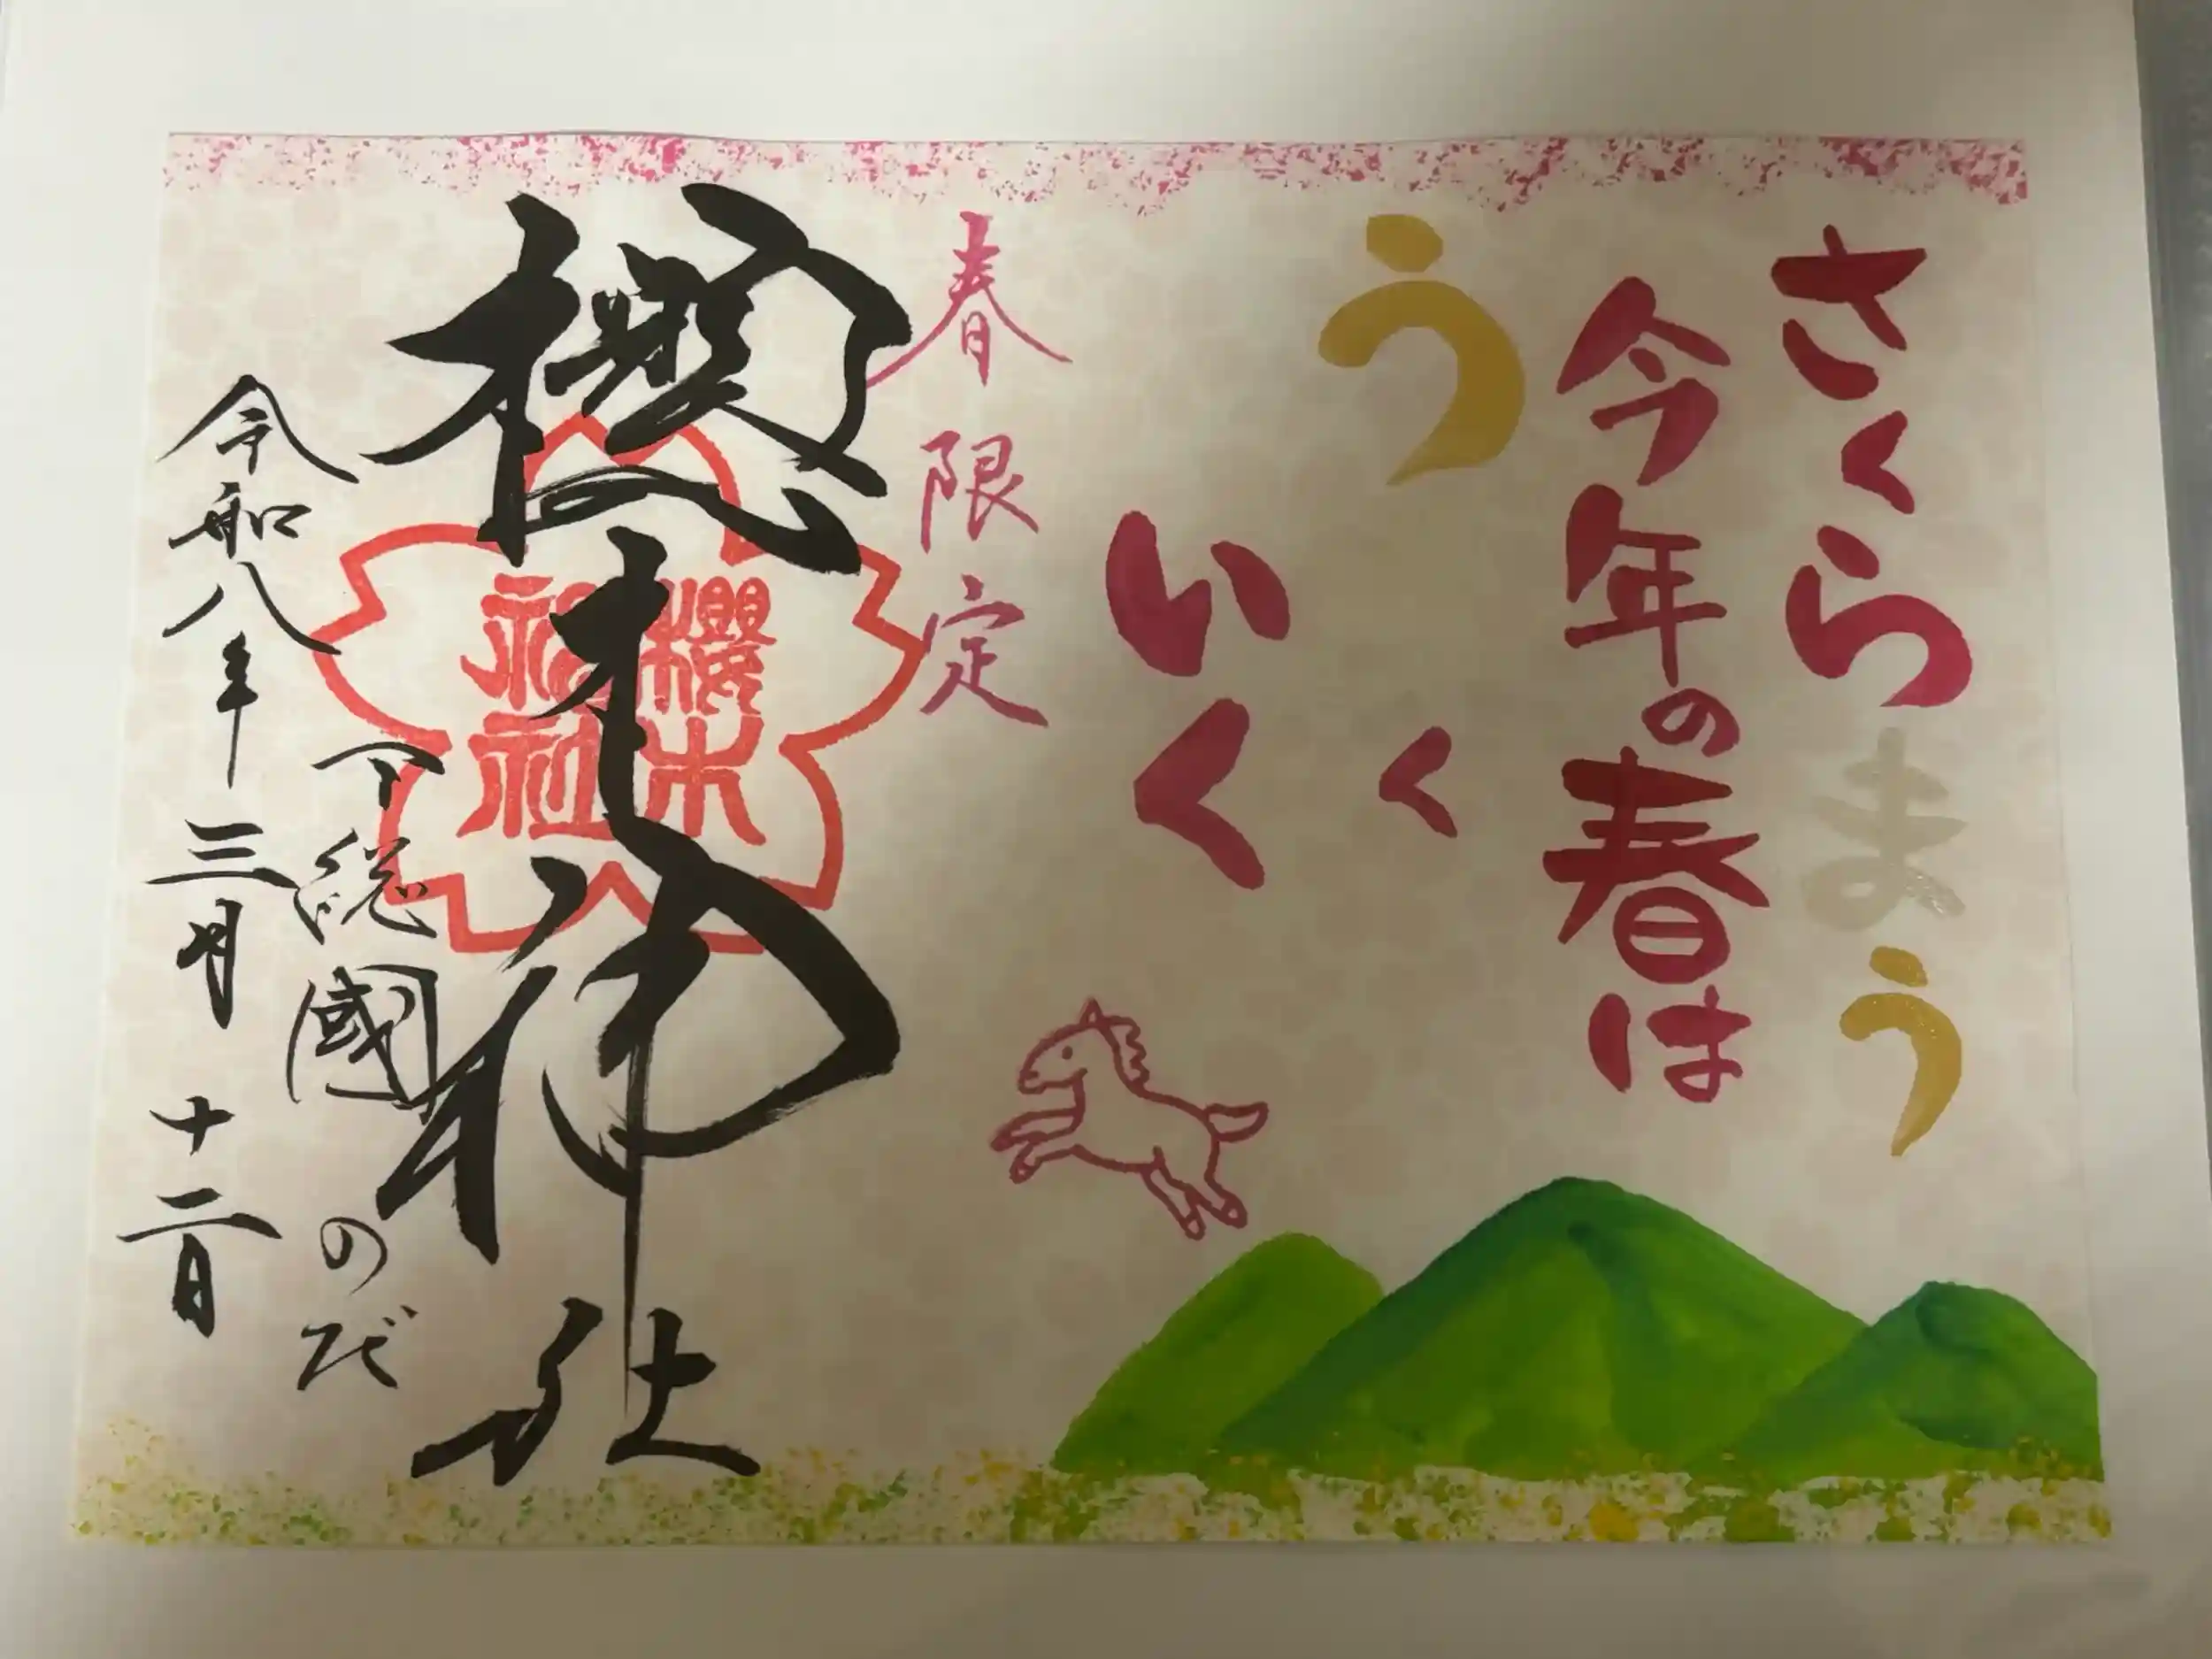 さくらまう
今年の春は
うく
いく
春限定
櫻木神社
櫻木
神社
下総國のだ
令和八年三月十二日